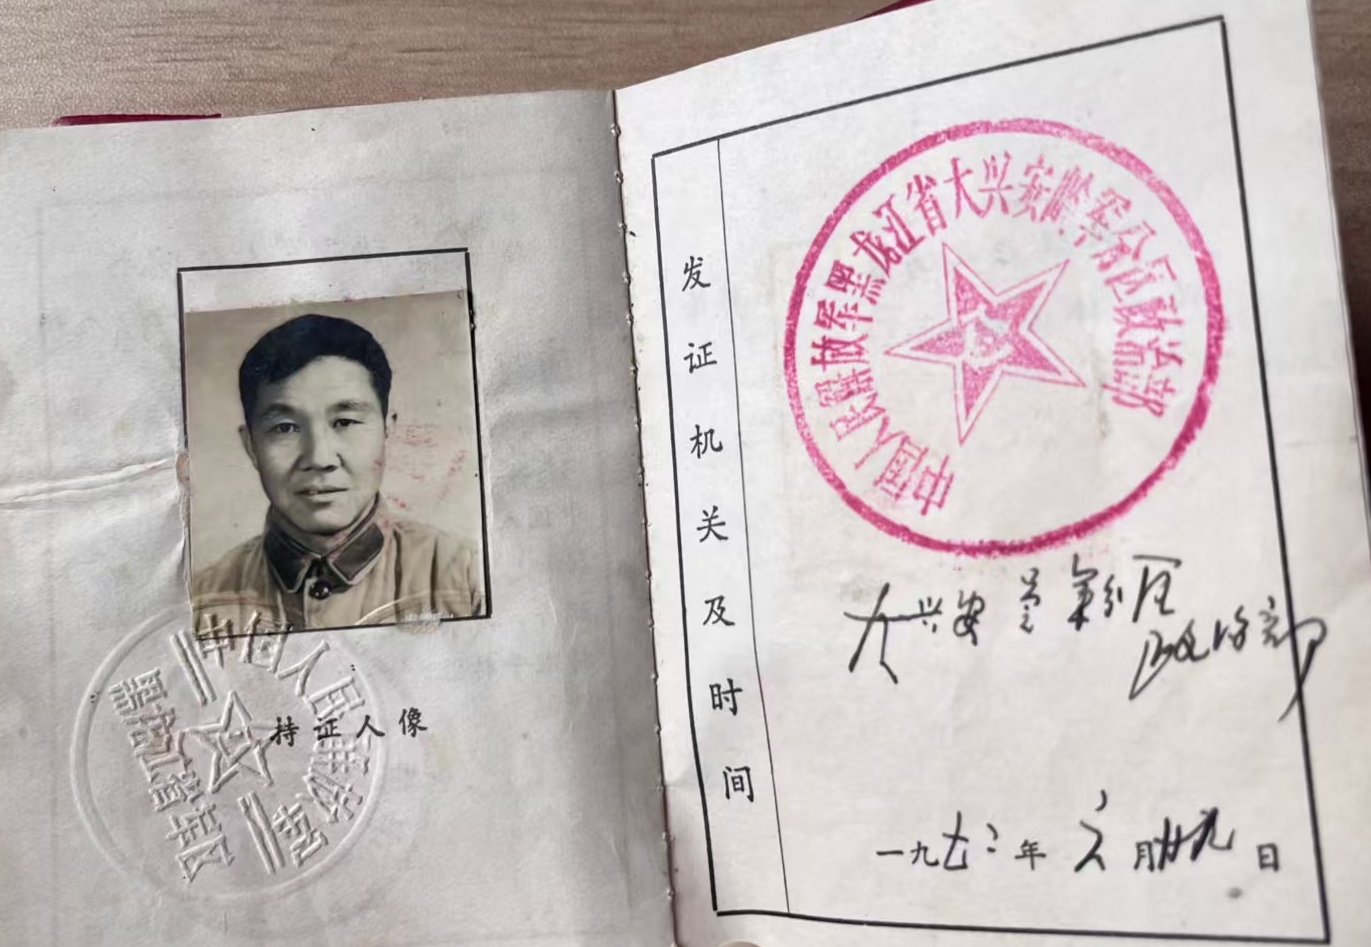 中国人民解放军
黑龙江省军区
持证人像
发证机关及时间
中国人民解放军黑龙江省大兴安岭军分区政治部
大兴安岭军分区
政治部
一九七二年六月廿九日